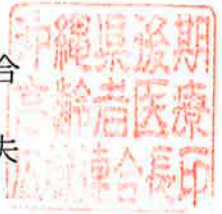 合
夫
沖縄県後期
高齢者医療
広域連合長印